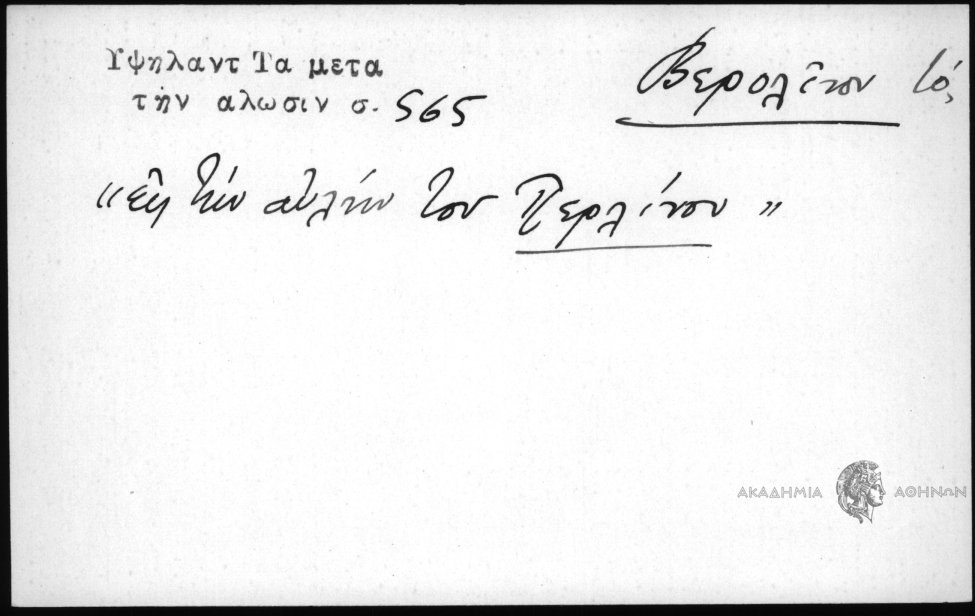 Υψηλαντ Τα μετα
την αλωσιν σ. 565
Βερολῖνον τό,
"εἰς τὴν αὐλὴν του Περλίνου"
ΑΚΑΔΗΜΙΑ ΑΘΗΝΩΝ